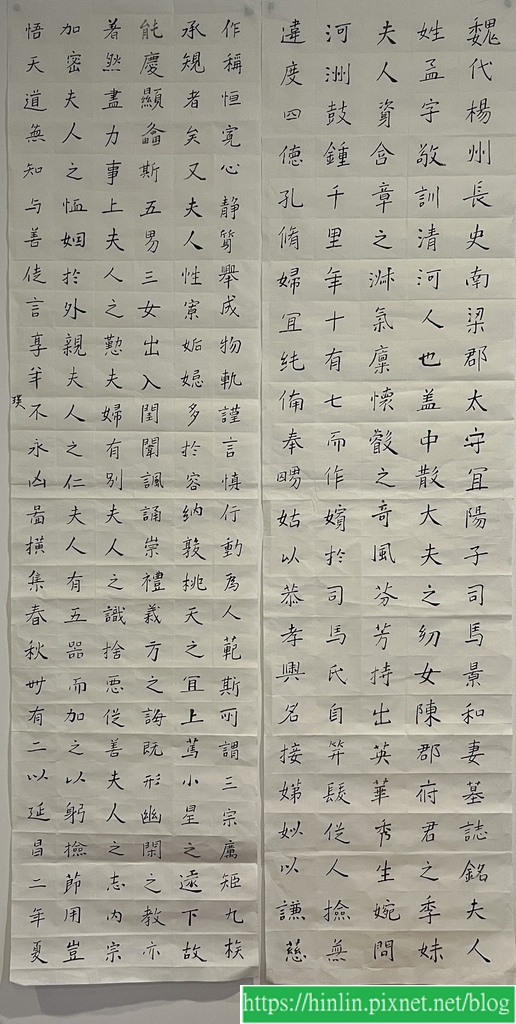 魏代楊州長史南梁郡太守宜陽子司馬景和妻墓誌銘夫人
姓孟字敬訓清河人也盖中散大夫之幼女陳郡府君之季妹
夫人資含章之淑氣廩懷叡之奇風芬芳持出英華秀生婉問
河洲鼓鍾千里年十有七而作嬪於司馬氏自笄髮從人撿無
違度四德孔脩婦宜純俻奉舅姑以恭孝興名接娣姒以謙慈
作稱恒寬心静質舉成物軌謹言慎行動為人範斯所謂三宗厲矩九族
承規者矣又夫人性寡妬媢多於容納敦桃夭之宜上篤小星之遠下故
能慶顯螽斯五男三女出入閨闈諷誦崇禮義方之誨既形幽閑之教亦
著然盡力事上夫人之懃夫婦有別夫人之識捨惡從善夫人之志內宗
加密夫人之恤姻於外親夫人之仁夫人有五器而加之以躬撿節用豈
悟天道無知与善徒言享年不永凶啚橫集春秋卌有二以延昌二年夏
瑛
https://hinlin.pixnet.net/blog